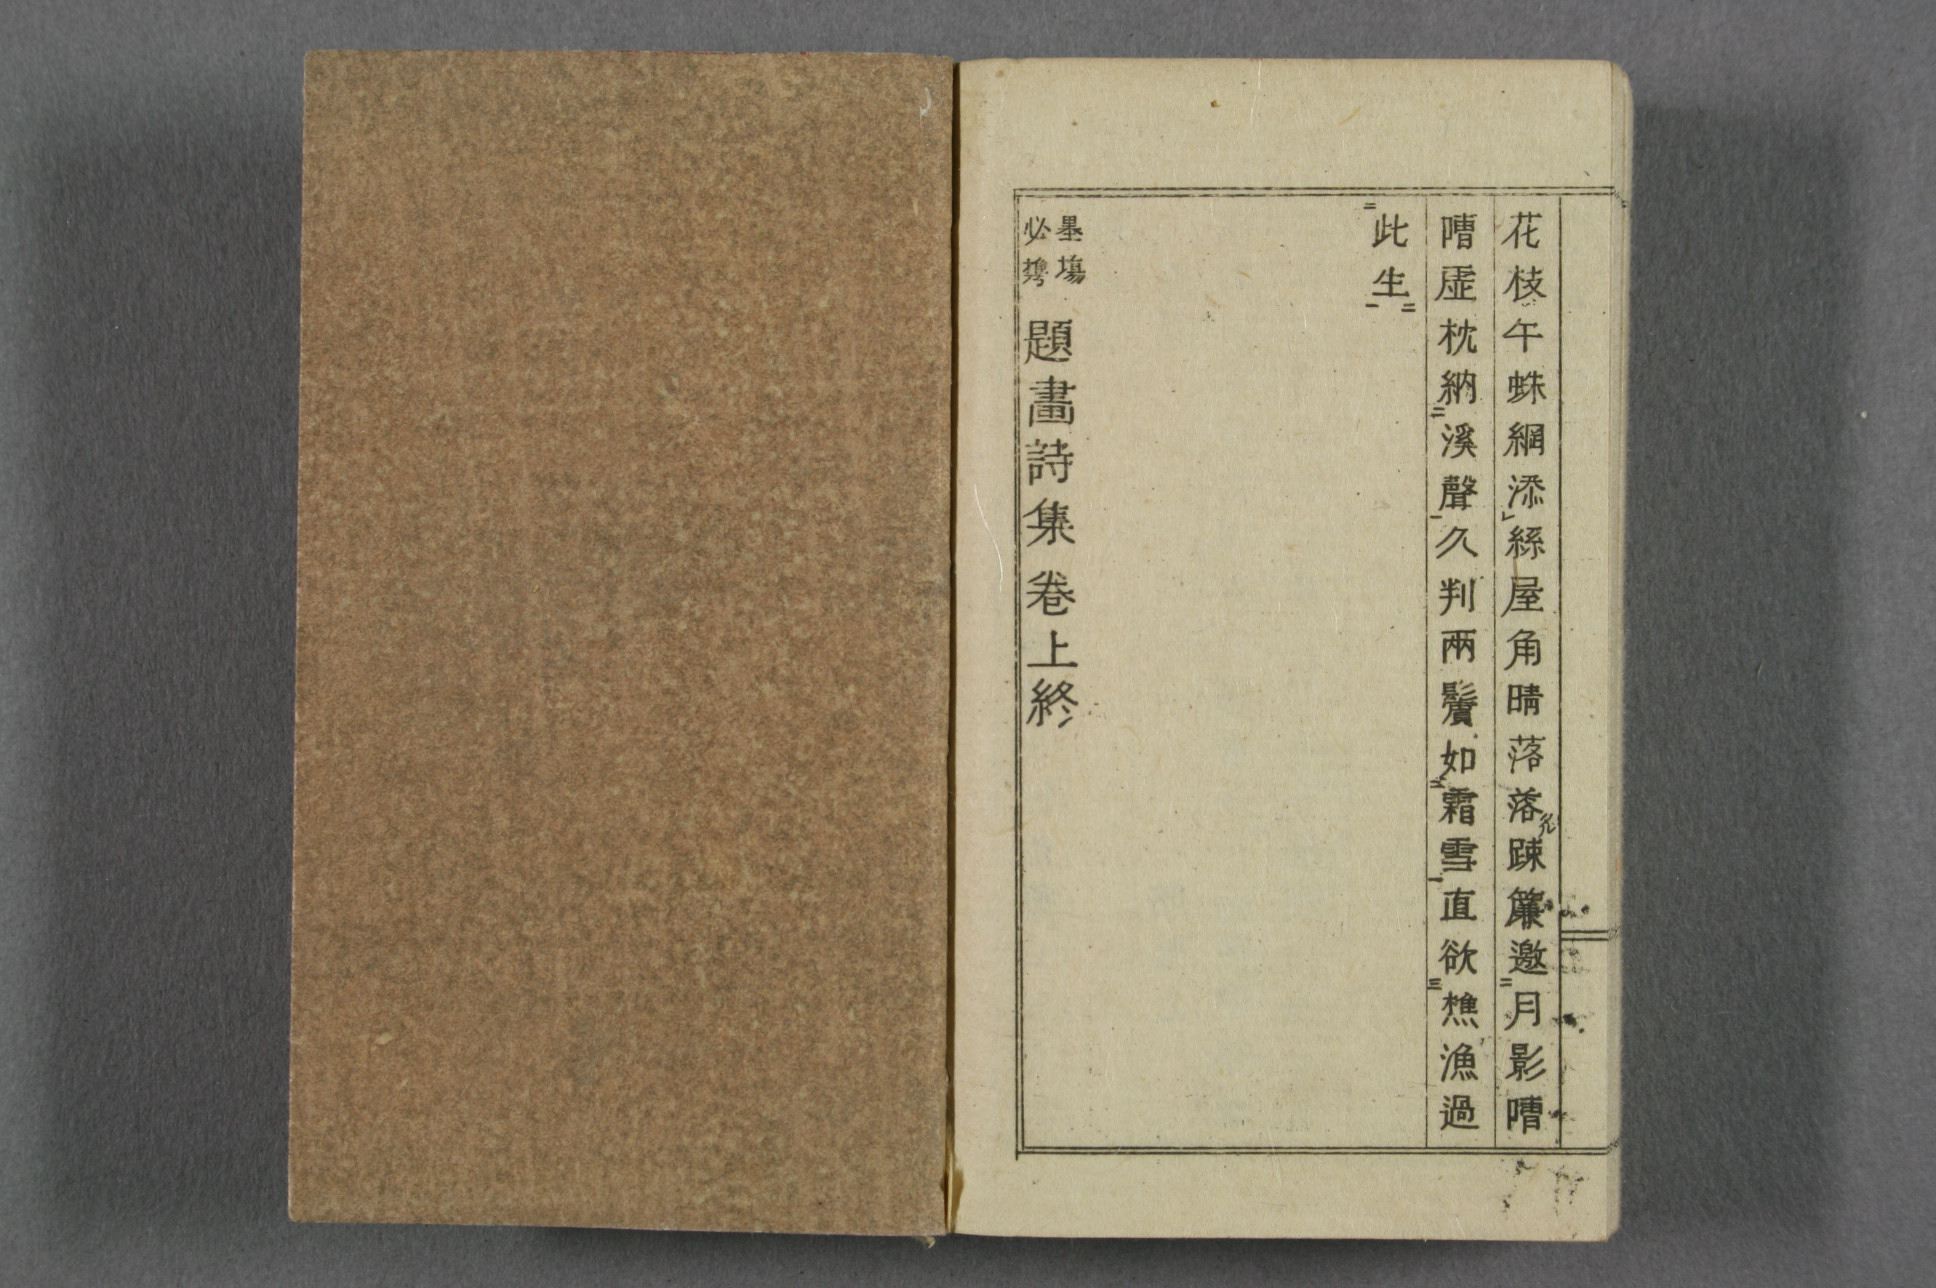 花枝午蛛網添絲屋角晴落落疎簾邀月影嘈
嘈虛枕納溪聲久判兩鬢如霜雪直欲樵漁過
此生
墨塲
必携
題畫詩集卷上終